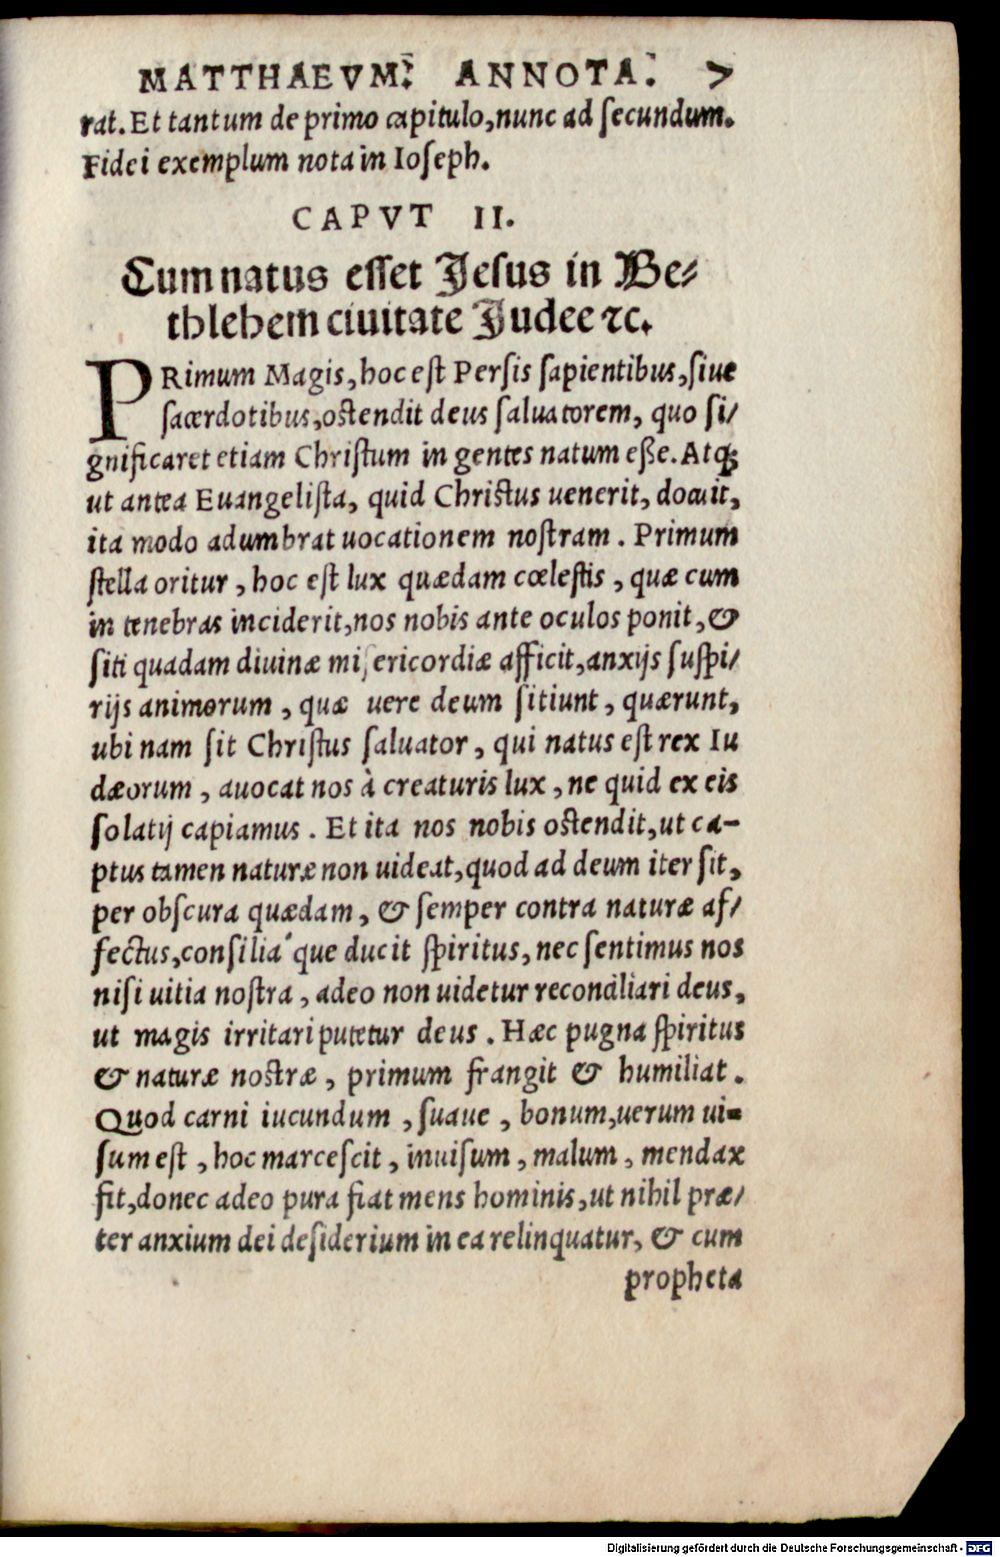 MATTHAEVM: ANNOTA: 7
rat. Et tantum de primo capitulo, nunc ad ſecundum.
Fidei exemplum nota in Ioſeph.
CAPVT II.
Cum natus eſſet Jeſus in Be⸗
thlehem ciuitate Judee ⁊c.
PRimum Magis, hoc eſt Perſis ſapientibus, ſiue
ſacerdotibus, oſtendit deus ſaluatorem, quo ſi/
gnificaret etiam Chriſtum in gentes natum eſſe. Atq;
ut antea Euangeliſta, quid Chriſtus uenerit, docuit,
ita modo adumbrat uocationem noſtram. Primum
ſtella oritur, hoc eſt lux quædam cœleſtis, quæ cum
in tenebras inciderit, nos nobis ante oculos ponit, &
ſiti quadam diuinæ miſericordiæ afficit, anxijs ſuſpi/
rijs animorum, quæ uere deum ſitiunt, quærunt,
ubi nam ſit Chriſtus ſaluator, qui natus eſt rex Iu
dæorum, auocat nos à creaturis lux, ne quid ex eis
ſolatij capiamus. Et ita nos nobis oſtendit, ut ca-
ptus tamen naturæ non uideat, quod ad deum iter ſit,
per obſcura quædam, & ſemper contra naturæ af/
fectus, conſilia´que ducit ſpiritus, nec ſentimus nos
niſi uitia noſtra, adeo non uidetur reconciliari deus,
ut magis irritari putetur deus. Hæc pugna ſpiritus
& naturæ noſtræ, primum frangit & humiliat.
Quod carni iucundum, ſuaue, bonum, uerum ui-
ſum eſt, hoc marceſcit, inuiſum, malum, mendax
fit, donec adeo pura fiat mens hominis, ut nihil præ/
ter anxium dei deſiderium in ea relinquatur, & cum
propheta
Digitalisierung gefördert durch die Deutsche Forschungsgemeinschaft - DFG